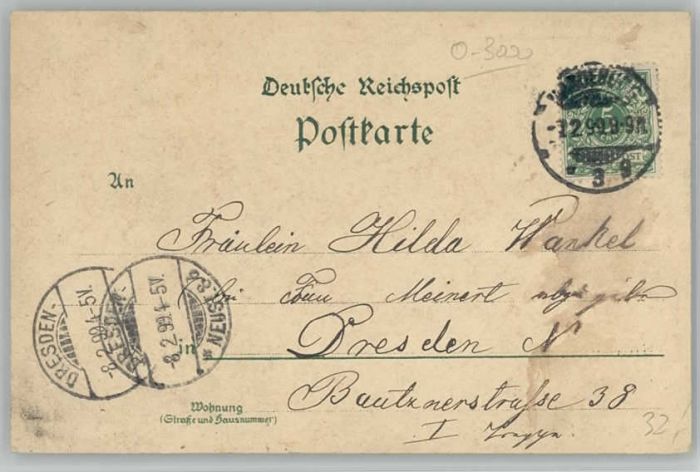 O-3000
Deutsche Reichspost
Postkarte
MAGDEBURG
-7.2.99.8-9N.
* 3 g
5
An
Fräulein Hilda Wankel
bei Frau Meinert abzugeben
DRESDEN-
-8.2.99.4-5V.
DRESDEN-
-8.2.99.4-5V.
NEUST.
in Dresden N
Wohnung
(Straße und Hausnummer)
Bautznerstraße 38
I
32,